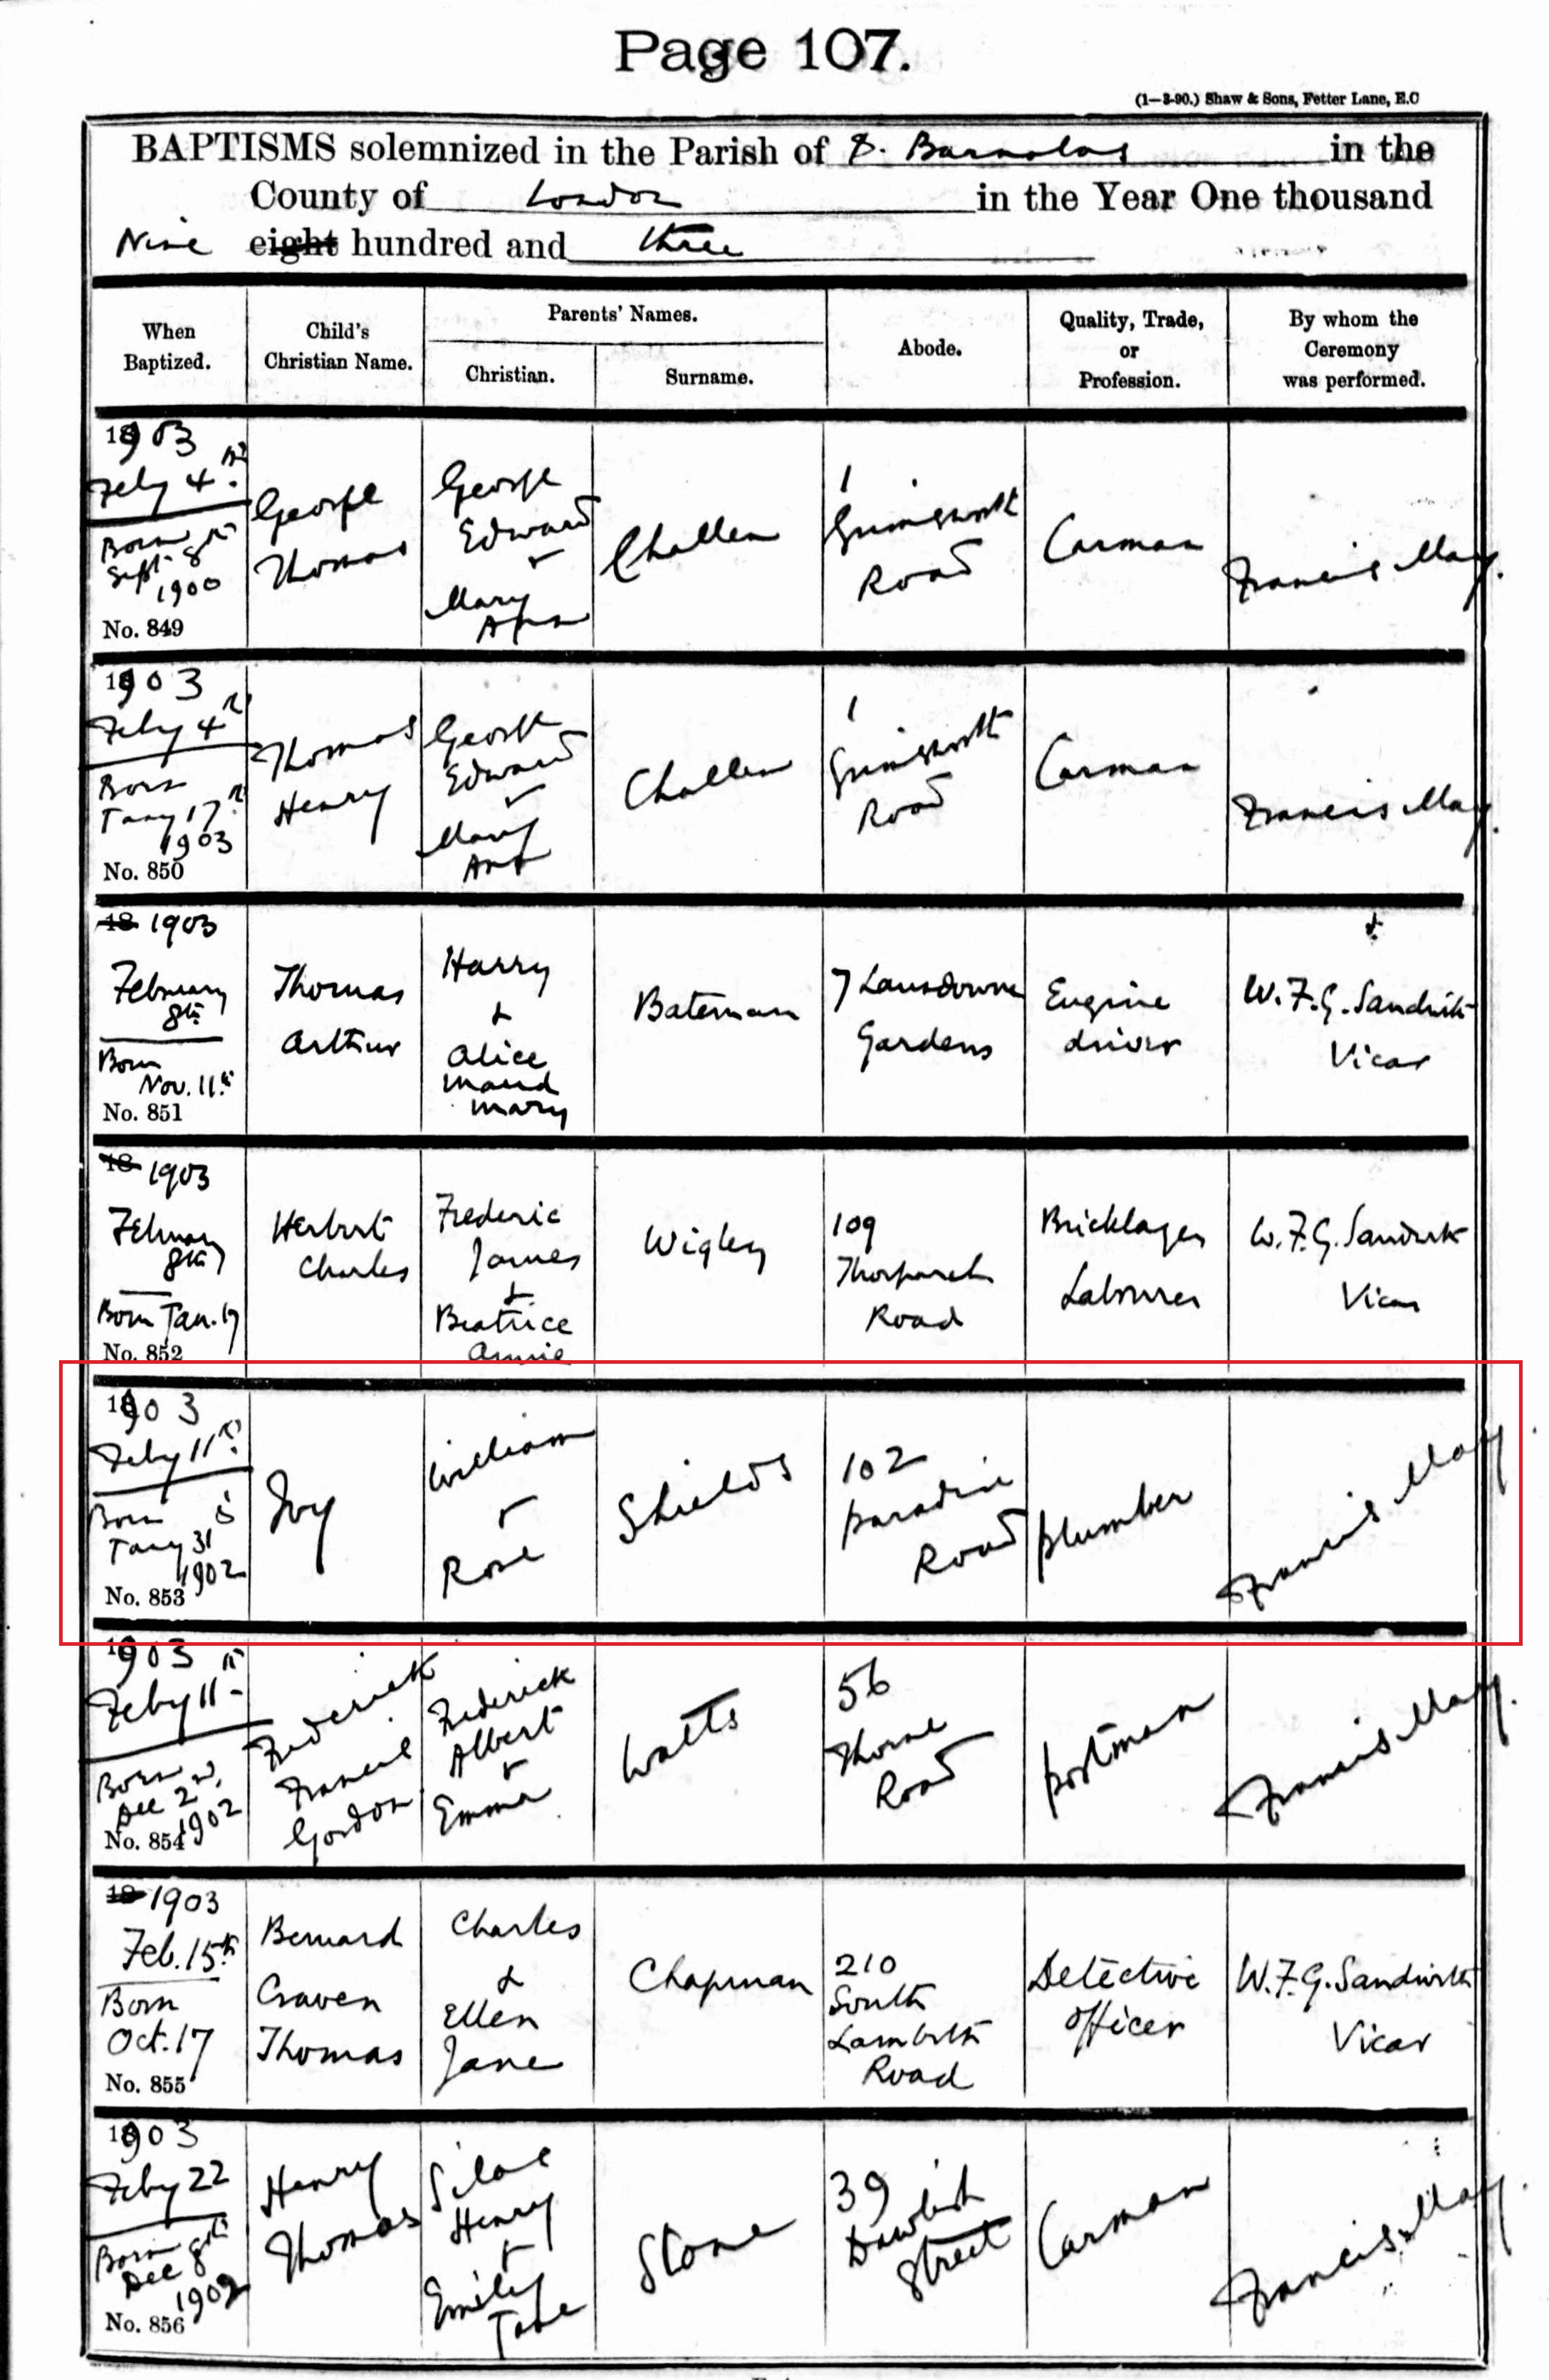 Page 107.
(1—3-90.) Shaw & Sons, Fetter Lane, E.C
BAPTISMS solemnized in the Parish of S. Barnabas in the
County of London in the Year One thousand
Nine eight hundred and three
When Baptized.
Child's Christian Name.
Parents' Names.
Christian.
Surname.
Abode.
Quality, Trade, or Profession.
By whom the Ceremony was performed.
1903
Feby 4th
Born
Sept. 8th
1900
No. 849
George
Thomas
George
Edward
+
Mary
Ann
Challen
1
Grimsworth
Road
Carman
Francis May.
1903
Feby 4th
Born
Jany 17th
1903
No. 850
Thomas
Henry
George
Edward
+
Mary
Ann
Challen
1
Grimsworth
Road
Carman
Francis May.
18 1903
February
8th
Born
Nov. 11th
No. 851
Thomas
Arthur
Harry
&
Alice
Maud
Mary
Bateman
7 Lansdowne
Gardens
Engine
driver
W. F. G. Sandwith
Vicar
18 1903
February
8th
Born Jan. 17
No. 852
Herbert
Charles
Frederic
James
&
Beatrice
Annie
Wigley
109
Thorparch
Road
Bricklayer
Labourer
W. F. G. Sandwith
Vicar
1903
Feby 11th
Born
Jany 31
1902
No. 853
Ivy
William
+
Rose
Shields
102
Paradise
Road
plumber
Francis May.
1903
Feby 11th
Born
Dec 2nd
1902
No. 854
Frederick
Francis
Gordon
Frederick
Albert
+
Emma
Watts
56
Thorne
Road
postman
Francis May.
18 1903
Feb. 15th
Born
Oct. 17
No. 855
Bernard
Craven
Thomas
Charles
&
Ellen
Jane
Chapman
210
South
Lambeth
Road
Detective
Officer
W. F. G. Sandwith
Vicar
1903
Feby 22
Born
Dec 8th
1902
No. 856
Henry
Thomas
Silas
Henry
+
Emily
Jane
Stone
39
Dawlish
Street
Carman
Francis May.